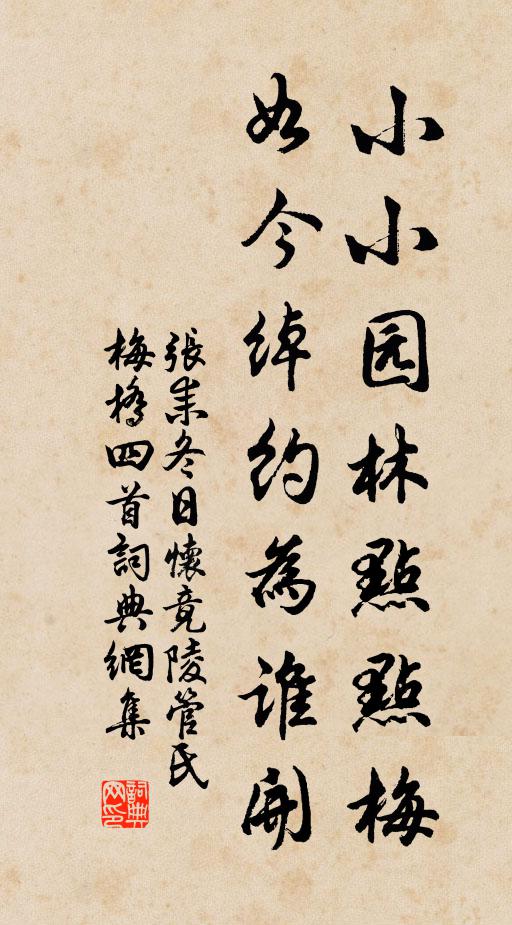 小小园林點點梅
如今綽約為誰開
張耒冬日懷竟陵管氏
梅橋四首詞典網集
詞典網印